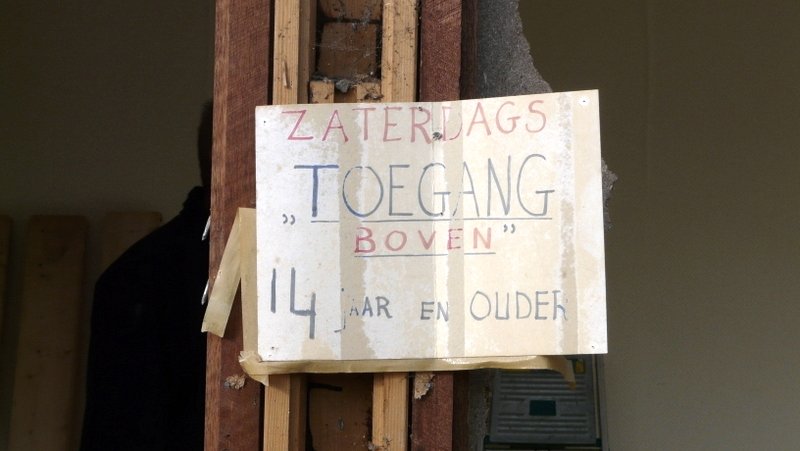 ZATERDAGS
„TOEGANG
BOVEN”
14 jAAR EN OUDER